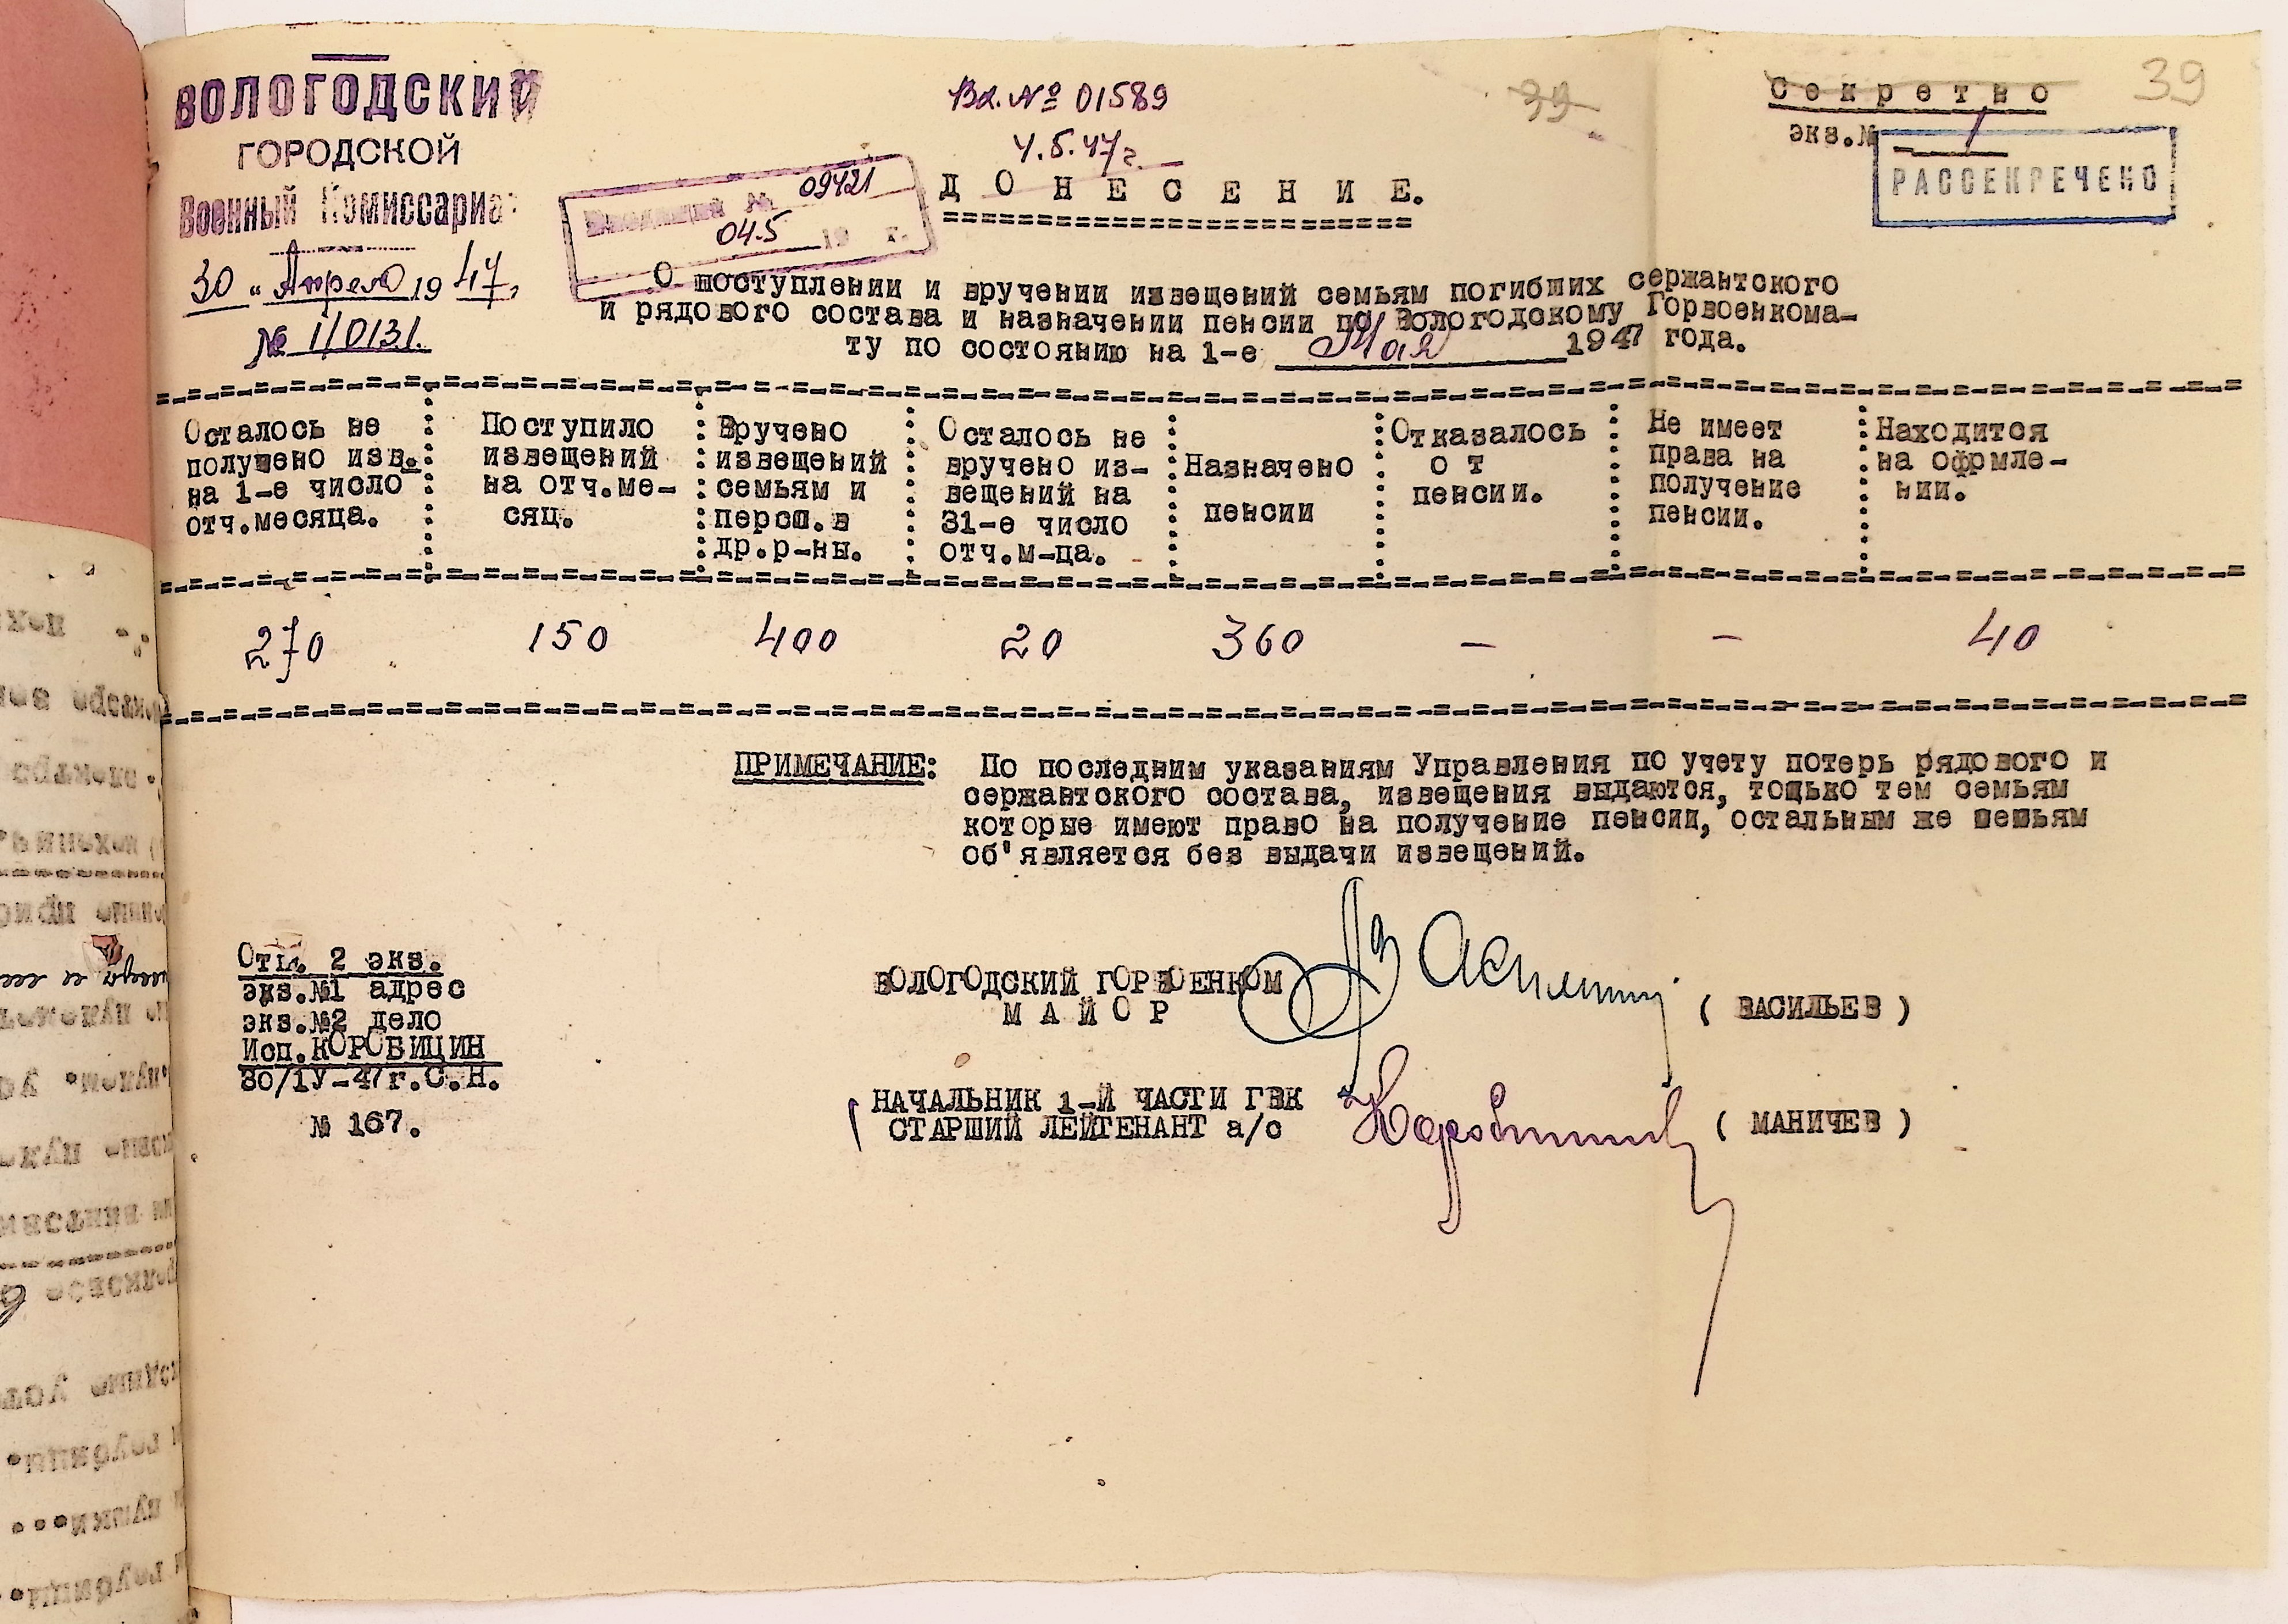 ВОЛОГОДСКИЙ
ГОРОДСКОЙ
Военный Комиссариат
30 " Апреля 1947
№ 1/0131.
Вх. № 01589
4.5.47г.
09421
04.5 19 г.
39
Секретно
39
экз.№ 1
РАССЕКРЕЧЕНО
ДОНЕСЕНИЕ.
О поступлении и вручении извещений семьям погибших сержантского
и рядового состава и назначении пенсии по Вологодскому Горвоенкома-
ту по состоянию на 1-е Мая 1947 года.
Осталось не
получено изв.
на 1-е число
отч.месяца.
Поступило
извещений
на отч.ме-
сяц.
Вручено
извещений
семьям и
персл.в
др.р-ны.
Осталось не
вручено из-
вещений на
31-е число
отч.м-ца.
Назначено
пенсии
Отказалось
от
пенсии.
Не имеет
права на
получение
пенсии.
Находится
на офрмле-
нии.
270 150 400 20 360 – – 40
ПРИМЕЧАНИЕ: По последним указаниям Управления по учету потерь рядового и
сержантского состава, извещения выдаются, только тем семьям
которые имеют право на получение пенсии, остальным же семьям
об'является без выдачи извещений.
Отп. 2 экз.
экз.№1 адрес
экз.№2 дело
Исп.КОРОБИЦИН
30/1У-47г.С.Н.
№ 167.
ВОЛОГОДСКИЙ ГОРВОЕНКОМ
МАЙОР Васильев ( ВАСИЛЬЕВ )
НАЧАЛЬНИК 1-Й ЧАСТИ ГВК
СТАРШИЙ ЛЕЙТЕНАНТ а/с ( МАНИЧЕВ )